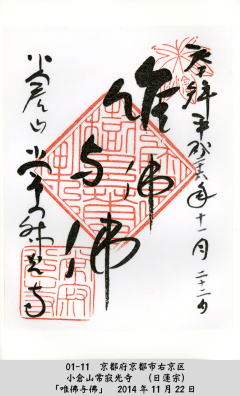 奉拝 平成二六年十一月二十二日
唯佛
与佛
小倉山 常寂光寺
01-11 京都府京都市右京区
小倉山常寂光寺 (日蓮宗)
「唯佛与佛」 2014年11月22日